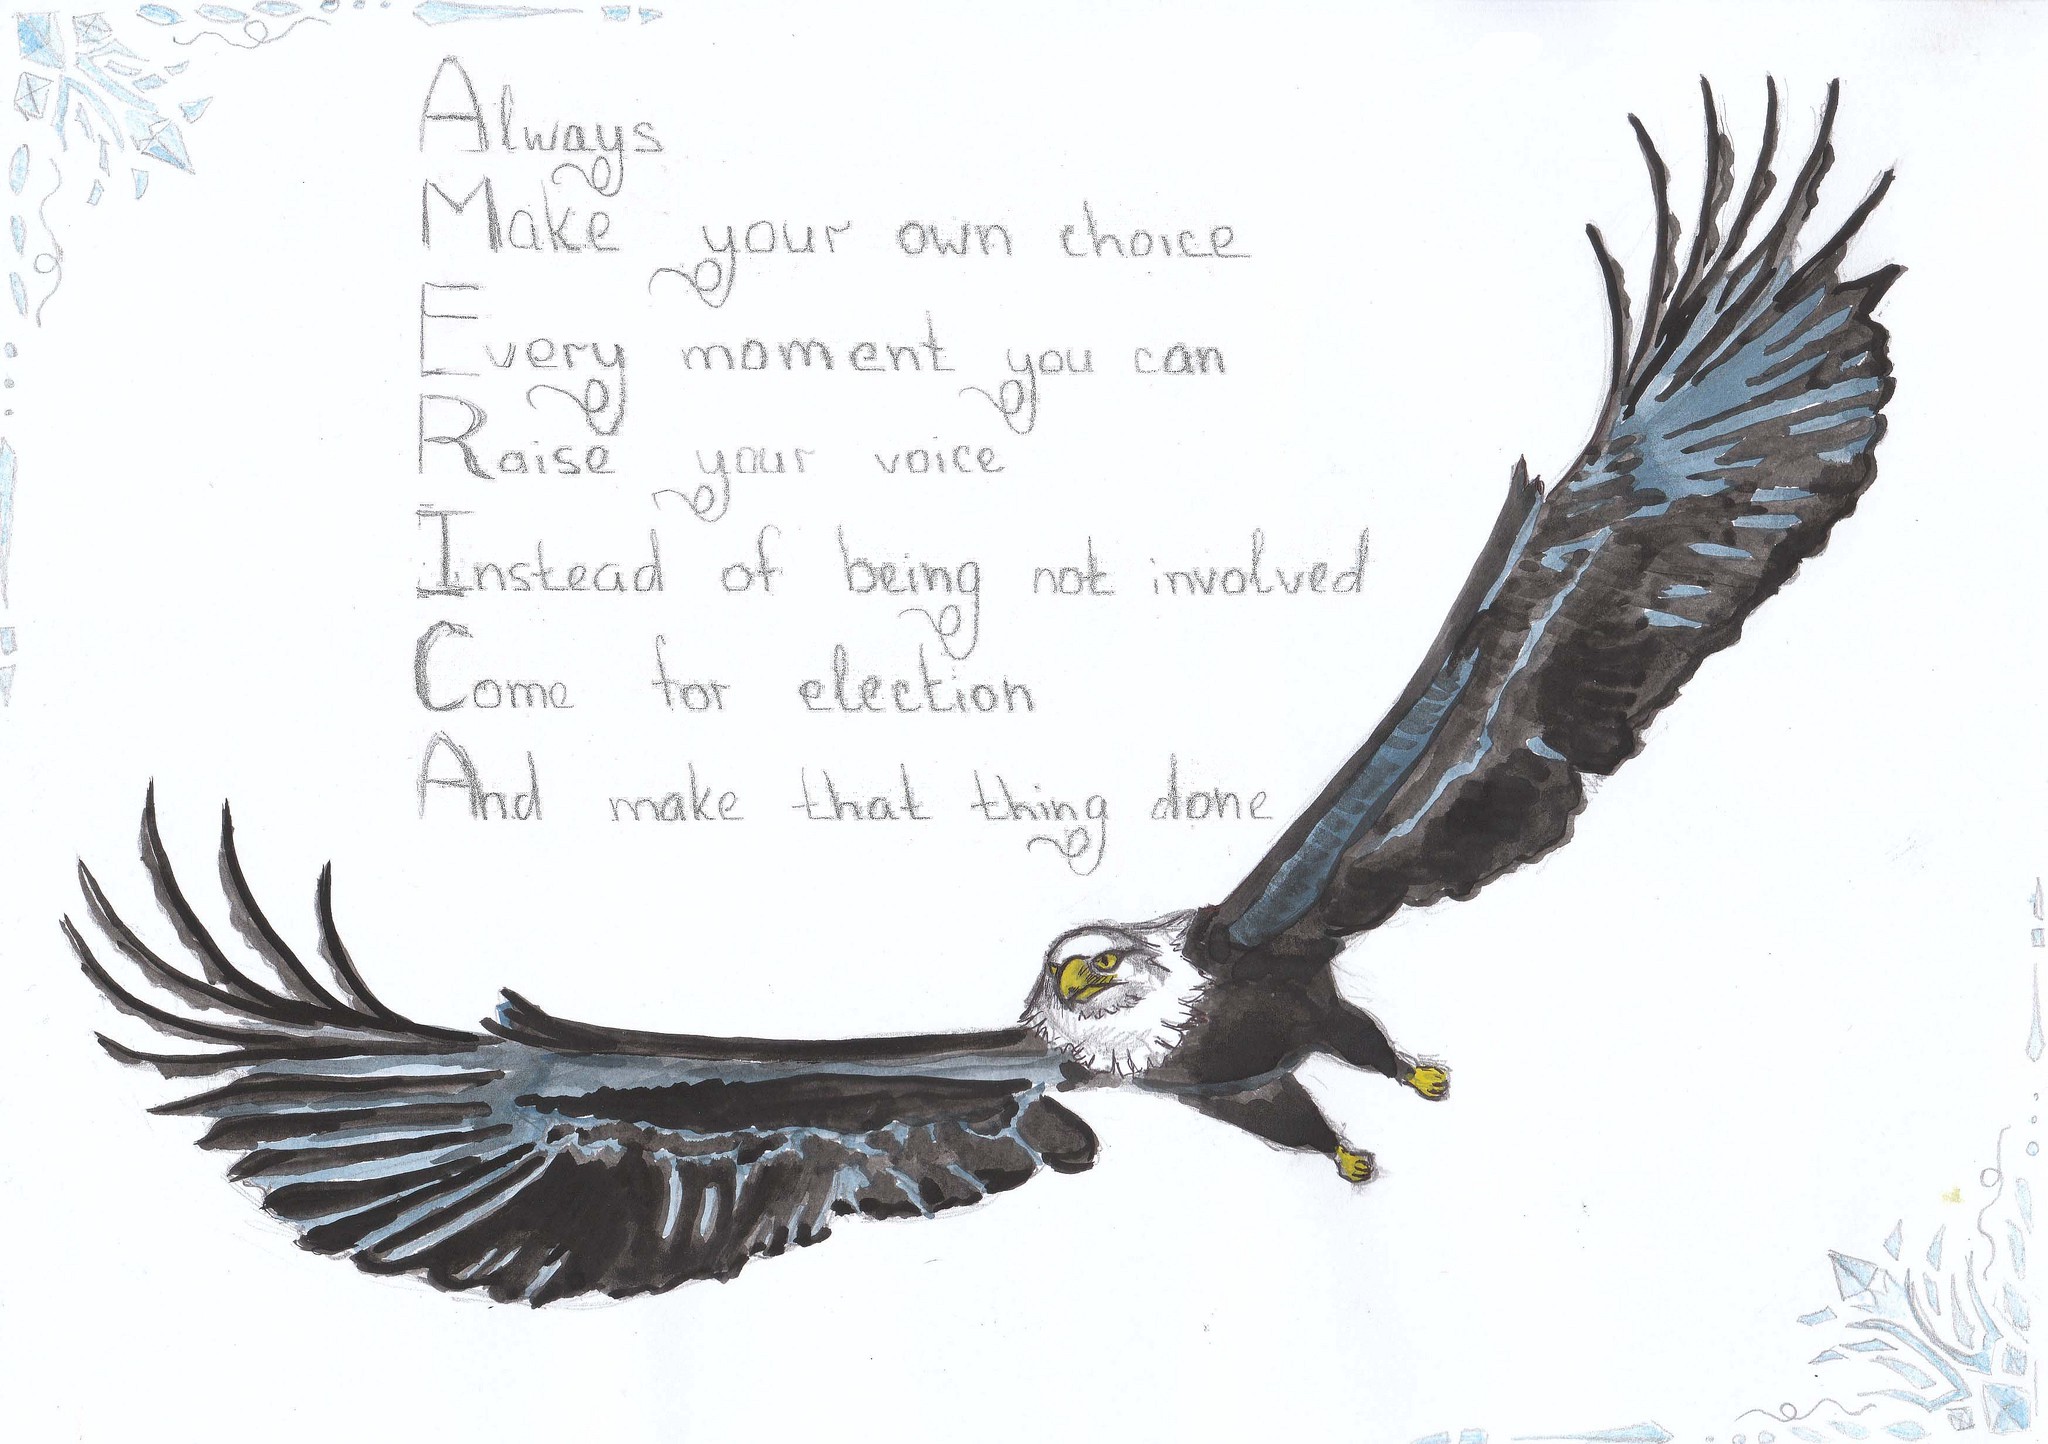 Always
Make your own choice
Every moment you can
Raise your voice
Instead of being not involved
Come for election
And make that thing done